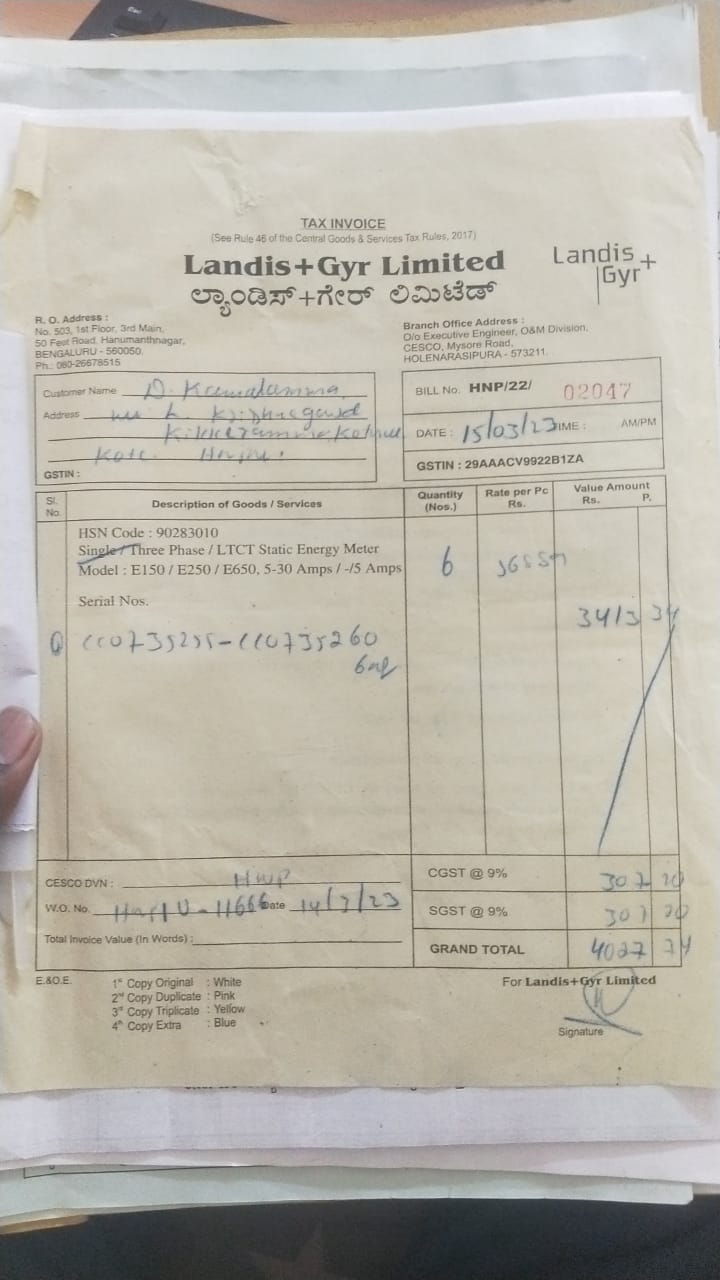 TAX INVOICE
(See Rule 46 of the Central Goods & Services Tax Rules, 2017)
Landis+Gyr Limited
ಲ್ಯಾಂಡಿಸ್+ಗೇರ್ ಲಿಮಿಟೆಡ್
Landis+
Gyr
R. O. Address :
No. 503, 1st Floor, 3rd Main,
50 Feet Road, Hanumanthnagar,
BENGALURU - 560050.
Ph.: 080-26678515
Branch Office Address :
O/o Executive Engineer, O&M Division,
CESCO, Mysore Road,
HOLENARASIPURA - 573211.
Customer Name D. Kamalamma
Address
Kote
GSTIN :
BILL No. HNP/22/ 02047
DATE : 15/03/23 TIME : AM/PM
GSTIN : 29AAACV9922B1ZA
Sl. No. Description of Goods / Services Quantity (Nos.) Rate per Pc Rs. Value Amount Rs. P.
HSN Code : 90283010
Single / Three Phase / LTCT Static Energy Meter
Model : E150 / E250 / E650, 5-30 Amps / -/5 Amps 6
Serial Nos.
3413 34
CESCO DVN : HNP
W.O. No. Date
Total Invoice Value (In Words) :
CGST @ 9% 307 20
SGST @ 9% 307 20
GRAND TOTAL 4027 74
E.&O.E.
1st Copy Original : White
2nd Copy Duplicate : Pink
3rd Copy Triplicate : Yellow
4th Copy Extra : Blue
For Landis+Gyr Limited
Signature